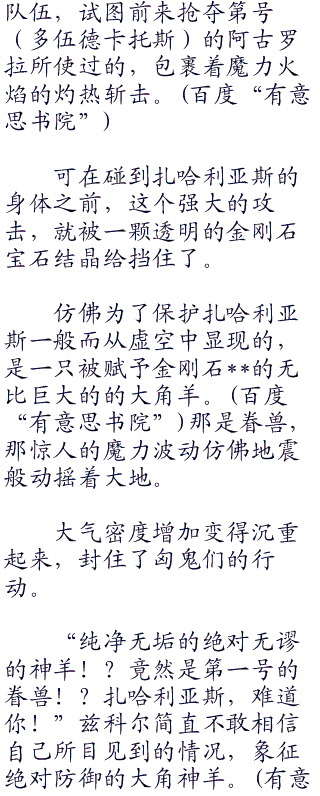 队伍，试图前来抢夺第号
（多伍德卡托斯）的阿古罗
拉所使过的，包裹着魔力火
焰的灼热斩击。(百度“有意
思书院”)
可在碰到扎哈利亚斯的
身体之前，这个强大的攻
击，就被一颗透明的金刚石
宝石结晶给挡住了。
仿佛为了保护扎哈利亚
斯一般而从虚空中显现的，
是一只被赋予金刚石**的无
比巨大的的大角羊。(百度
“有意思书院”)那是眷兽，
那惊人的魔力波动仿佛地震
般动摇着大地。
大气密度增加变得沉重
起来，封住了匈鬼们的行
动。
“纯净无垢的绝对无谬
的神羊！？竟然是第一号的
眷兽！？扎哈利亚斯，难道
你！”兹科尔简直不敢相信
自己所目见到的情况，象征
绝对防御的大角神羊。(有意